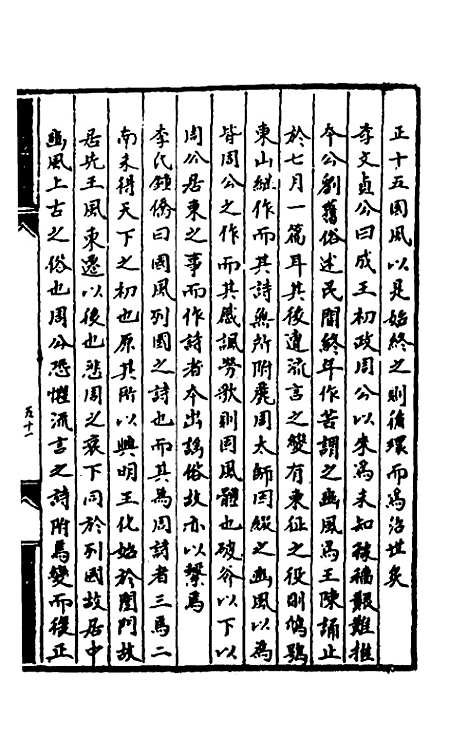 正十五國風以是始終之則循環而為治世矣
李文貞公曰成王初政周公以末為未知稼穡艱難推
本公劉舊俗述民間終年作苦謂之豳風為王陳誦止
於七月一篇耳其後遭流言之變有東征之役則鴟鴞
東山繼作而其詩無所附麗周太師因綴之豳風以為
皆周公之作而其感諷勞歌則國風體也破斧以下以
周公居東之事而作詩者本出謠俗故亦以繫焉
李氏鍾僑曰國風列國之詩也而其為周詩者三焉二
南未得天下之初也原其所以興明王化始於閨門故
居先王風東遷以後也悲周之衰下同於列國故居中
豳風上古之俗也周公恐懼流言之詩附焉變而復正
五十一